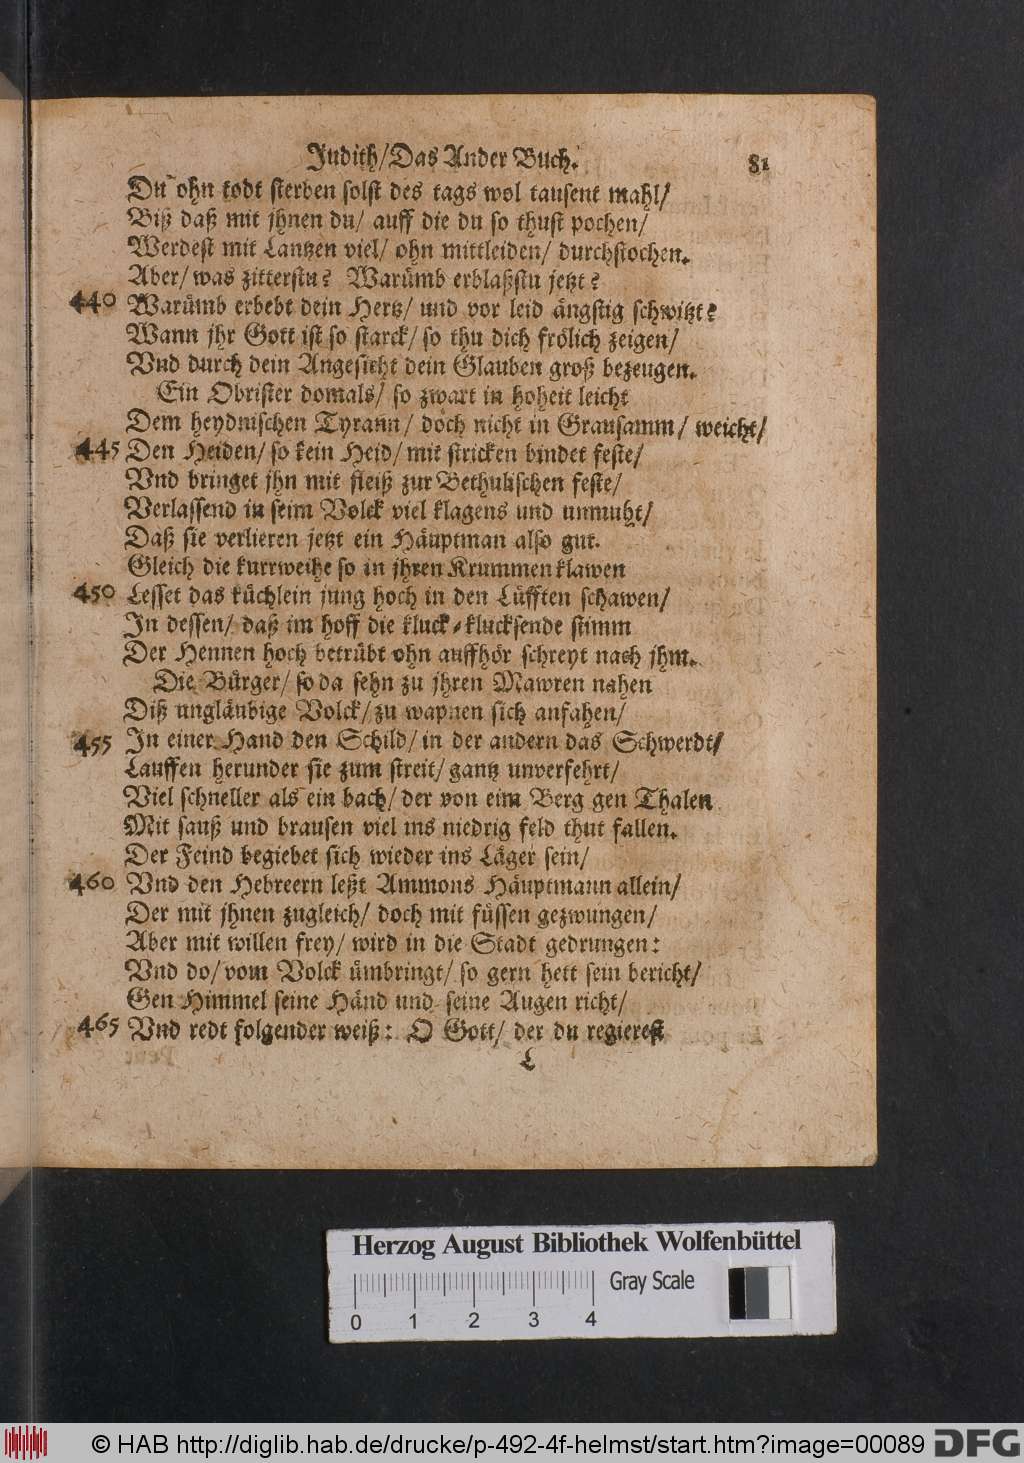 Judith/Das Ander Buch. 81
Du ohn todt sterben solst des tags wol tausent mahl/
Biß daß mit jhnen du/ auff die du so thust pochen/
Werdest mit Lantzen viel/ ohn mittleiden/ durchstochen.
Aber/ was zitterstu? Warümb erblaßstu jetzt?
440 Warümb erbebt dein Hertz/ und vor leid ängstig schwitzt?
Wann jhr Gott ist so starck/ so thu dich frölich zeigen/
Vnd durch dein Angesicht dein Glauben groß bezeugen.
Ein Obrister domals/ so zwart in hoheit leicht
Dem heydnischen Tyrann/ doch nicht in Grausamm/ weicht/
445 Den Heiden/ so kein Heid/ mit stricken bindet feste/
Vnd bringet jhn mit fleiß zur Bethulischen feste/
Verlassend in seim Volck viel klagens und unmuht/
Daß sie verlieren jetzt ein Häuptman also gut.
Gleich die kurrweihe so in jhren Krummen klawen
450 Lesset das küchlein jung hoch in den Lüfften schawen/
In dessen/ daß im hoff die kluck-klucksende stimm
Der Hennen hoch betrübt ohn auffhör schreyt nach jhm.
Die Bürger/ so da sehn zu jhren Mawren nahen
Diß ungläubige Volck/ zu wapnen sich anfahen/
455 In einer Hand den Schild/ in der andern das Schwerdt/
Lauffen herunder sie zum streit/ gantz unverfehrt/
Viel schneller als ein bach/ der von eim Berg gen Thalen
Mit sauß und brausen viel ins niedrig feld thut fallen.
Der Feind begiebet sich wieder ins Läger sein/
460 Vnd den Hebreern leßt Ammons Häuptmann allein/
Der mit jhnen zugleich/ doch mit füssen gezwungen/
Aber mit willen frey/ wird in die Stadt gedrungen:
Vnd do/ vom Volck ümbringt/ so gern hett sein bericht/
Gen Himmel seine Händ und seine Augen richt/
465 Vnd redt folgender weiß: O Gott/ der du regierest
L
Herzog August Bibliothek Wolfenbüttel
Gray Scale
0 1 2 3 4
© HAB http://diglib.hab.de/drucke/p-492-4f-helmst/start.htm?image=00089 DFG